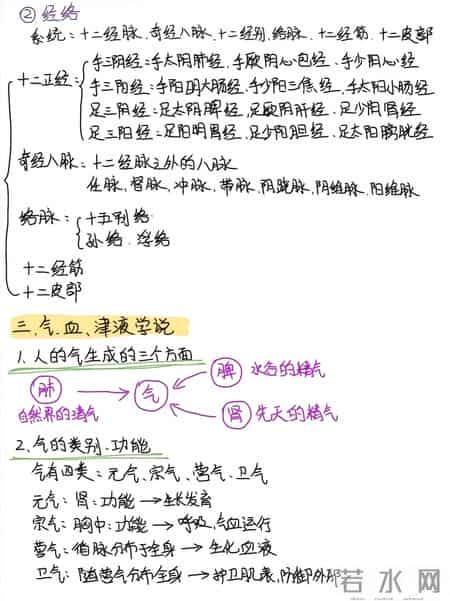 ② 经络
系统：十二经脉、奇经八脉、十二经别、络脉、十二经筋、十二皮部
十二正经：
手三阴经：手太阴肺经、手厥阴心包经、手少阴心经
手三阳经：手阳明大肠经、手少阳三焦经、手太阳小肠经
足三阴经：足太阴脾经、足厥阴肝经、足少阴肾经
足三阳经：足阳明胃经、足少阳胆经、足太阳膀胱经
奇经八脉：十二经脉之外的八脉
任脉、督脉、冲脉、带脉、阴跷脉、阴维脉、阳维脉
络脉：
十五别络
孙络、浮络
十二经筋
十二皮部
三、气、血、津液学说
1、人的气生成的三个方面
肺
自然界的清气
气
脾 水谷的精气
肾 先天的精气
2、气的类别、功能
气有四类：元气、宗气、营气、卫气
元气：肾：功能→生长发育
宗气：胸中：功能→呼吸，气血运行
营气：循脉分布于全身→生化血液
卫气：随营气分布全身→护卫肌表，防御外邪
若水网